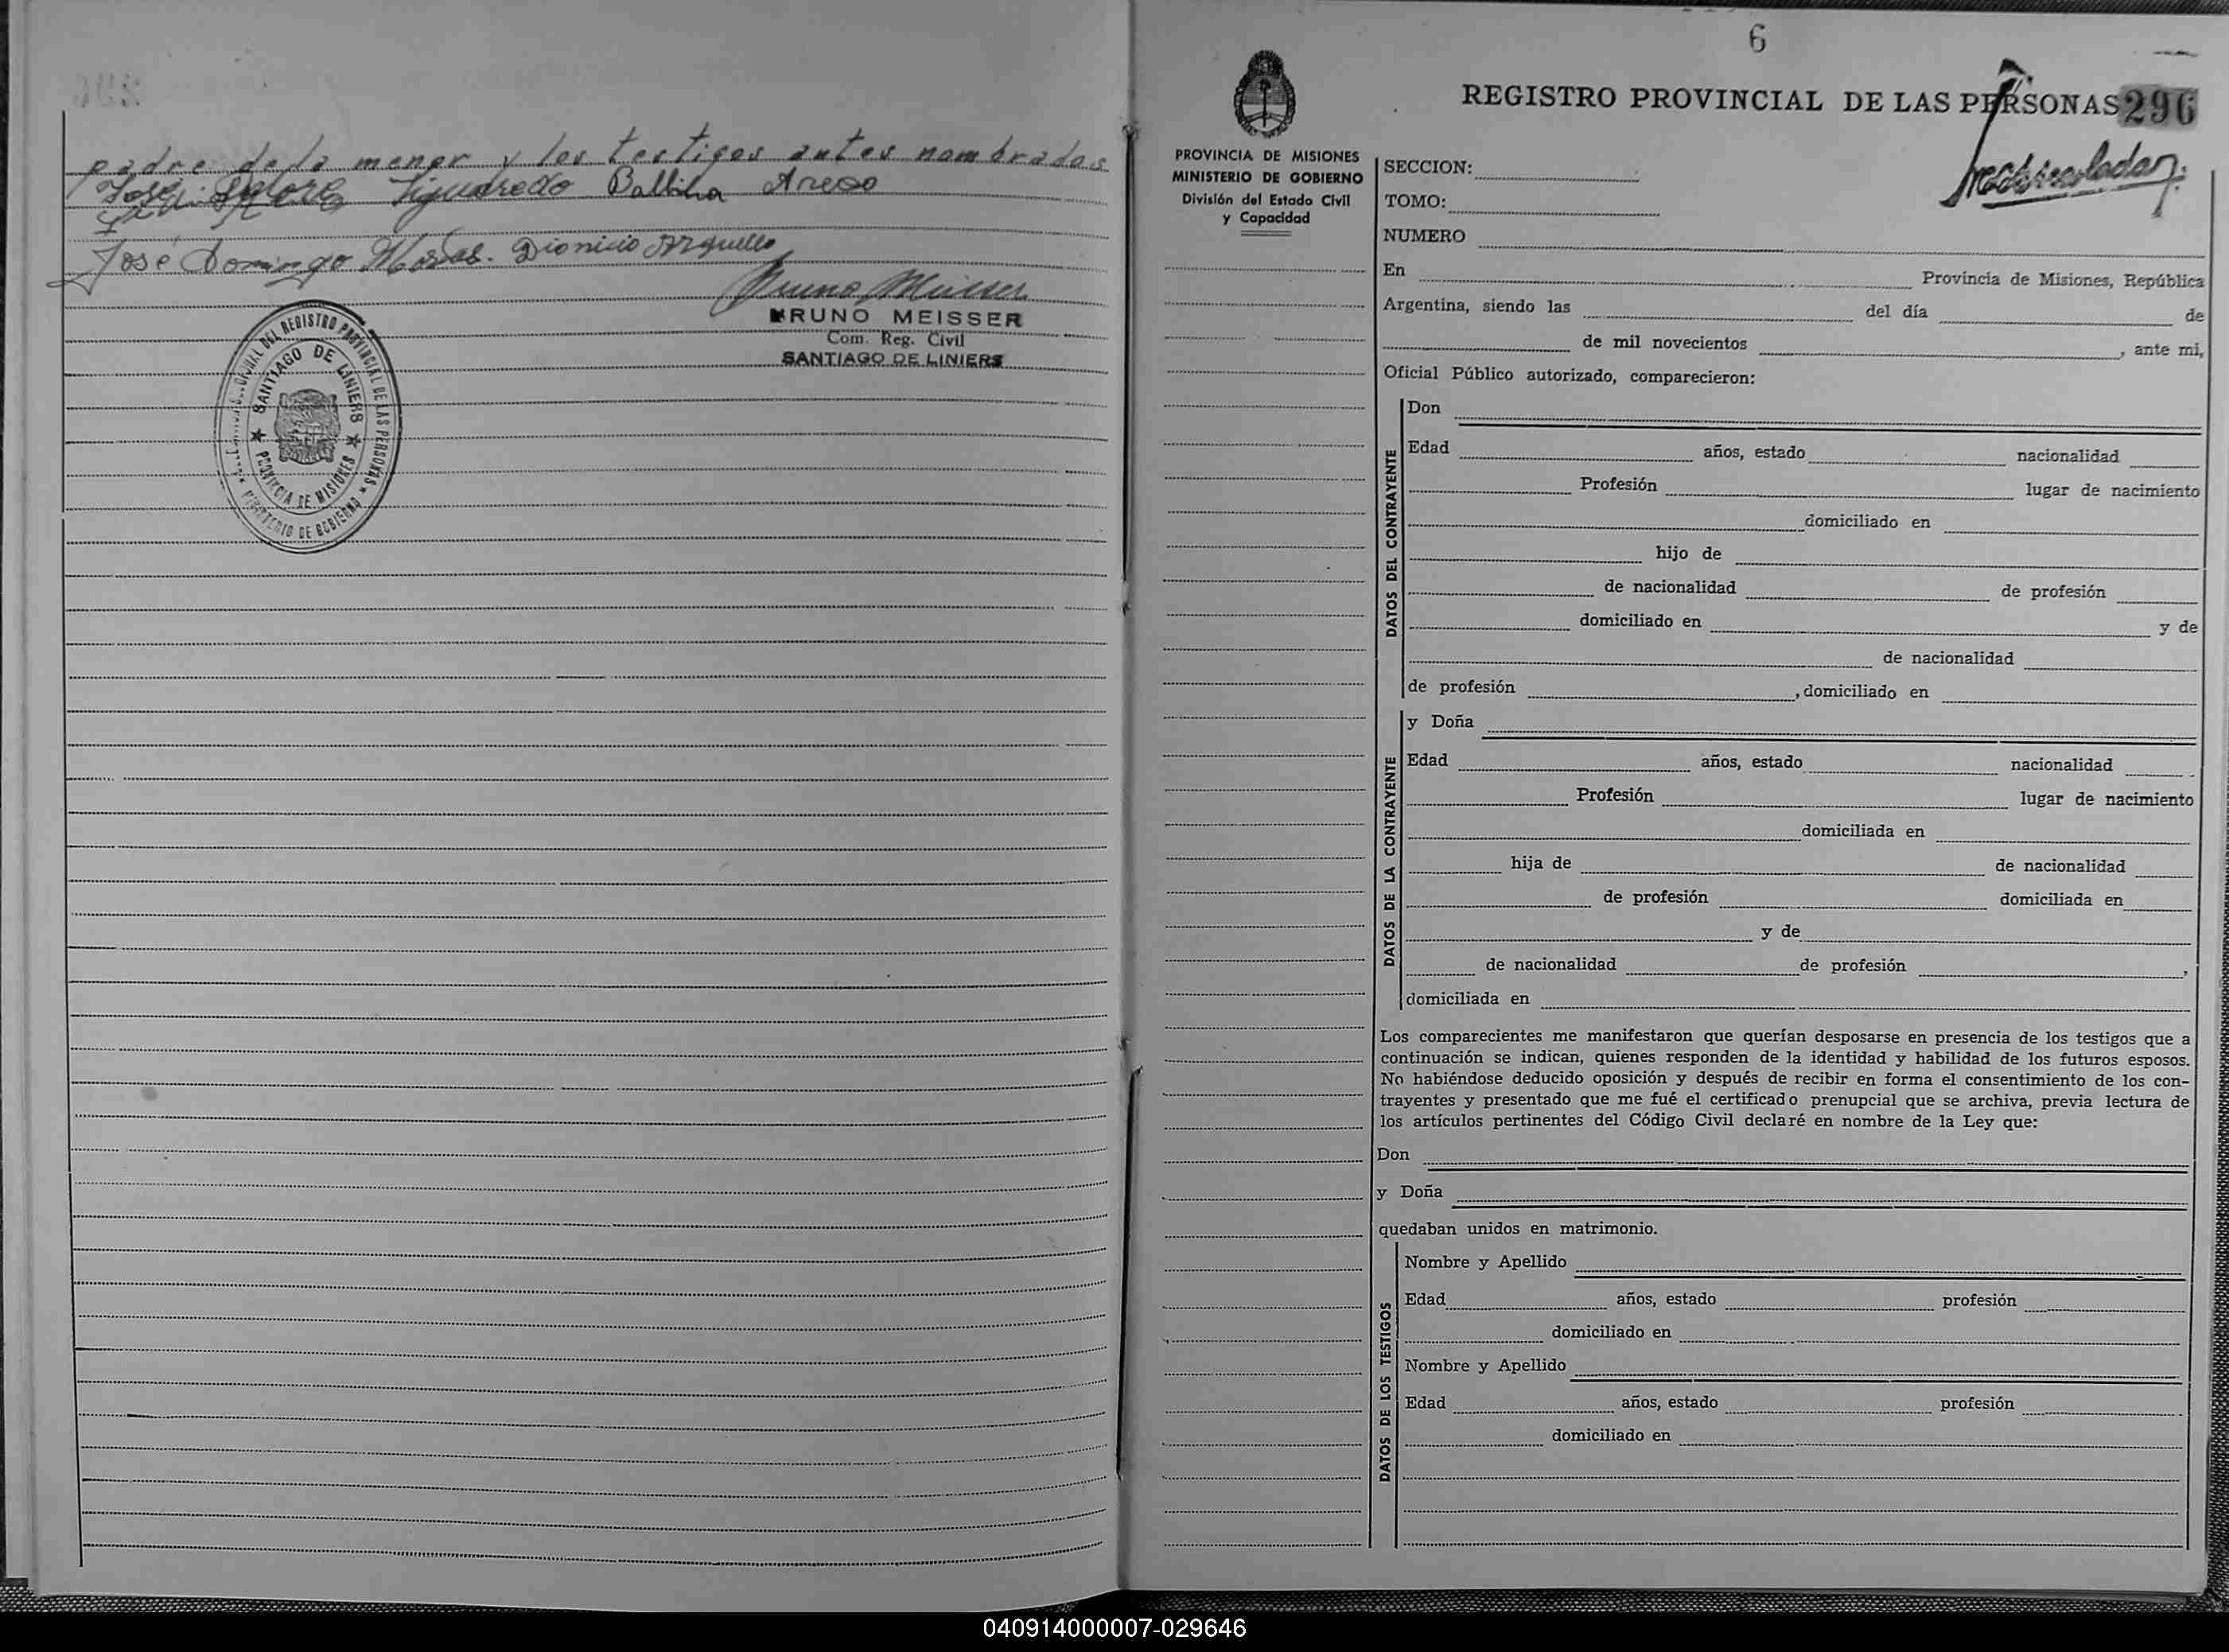 padre de la menor y los testigos antes nombrados
José Figueredo Balbina
José Domingo Dionicio Arguello
Bruno Meisser
BRUNO MEISSER
Com. Reg. Civil
SANTIAGO DE LINIERS
DEL REGISTRO PROVINCIAL DE LAS PERSONAS
MINISTERIO DE GOBIERNO
SANTIAGO DE LINIERS
PROVINCIA DE MISIONES
6
REGISTRO PROVINCIAL DE LAS PERSONAS 296
PROVINCIA DE MISIONES
MINISTERIO DE GOBIERNO
División del Estado Civil
y Capacidad
SECCION:
TOMO:
NUMERO
En Provincia de Misiones, República
Argentina, siendo las del día de
de mil novecientos , ante mi,
Oficial Público autorizado, comparecieron:
DATOS DEL CONTRAYENTE
Don
Edad años, estado nacionalidad
Profesión lugar de nacimiento
domiciliado en
hijo de
de nacionalidad de profesión
domiciliado en y de
de nacionalidad
de profesión , domiciliado en
DATOS DE LA CONTRAYENTE
y Doña
Edad años, estado nacionalidad
Profesión lugar de nacimiento
domiciliada en
hija de de nacionalidad
de profesión domiciliada en
y de
de nacionalidad de profesión ,
domiciliada en
Los comparecientes me manifestaron que querían desposarse en presencia de los testigos que a
continuación se indican, quienes responden de la identidad y habilidad de los futuros esposos.
No habiéndose deducido oposición y después de recibir en forma el consentimiento de los con-
trayentes y presentado que me fué el certificado prenupcial que se archiva, previa lectura de
los artículos pertinentes del Código Civil declaré en nombre de la Ley que:
Don
y Doña
quedaban unidos en matrimonio.
DATOS DE LOS TESTIGOS
Nombre y Apellido
Edad años, estado profesión
domiciliado en
Nombre y Apellido
Edad años, estado profesión
domiciliado en
040914000007-029646